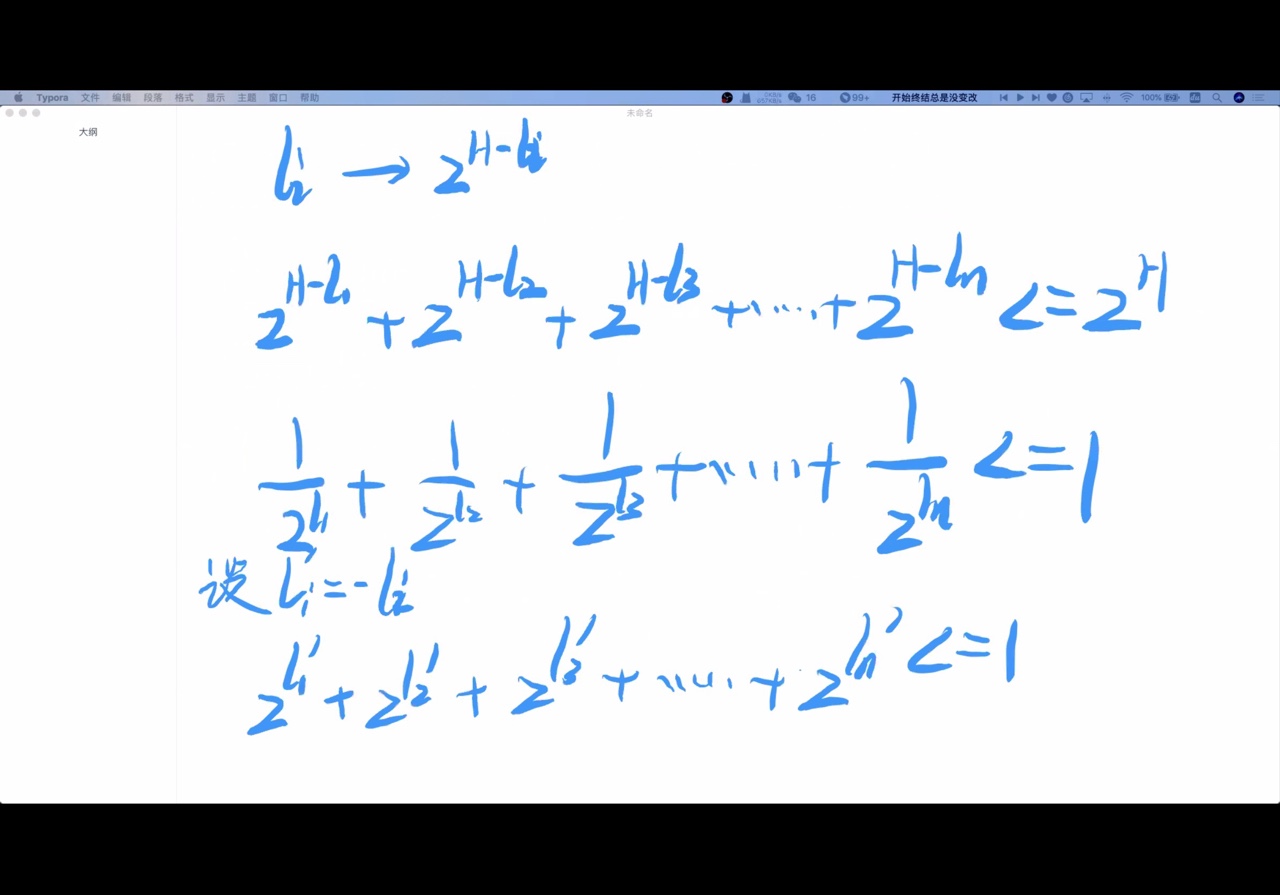 Typora 文件 编辑 段落 格式 显示 主题 窗口 帮助 16 99+ 开始终结总是没变改 100%
未命名
大纲
l_i → 2^{H-l_i}
2^{H-l_1} + 2^{H-l_2} + 2^{H-l_3} + ····· + 2^{H-l_n} <= 2^H
1/2^{l_1} + 1/2^{l_2} + 1/2^{l_3} + ····· + 1/2^{l_n} <= 1
设 l_i' = -l_i
2^{l_1'} + 2^{l_2'} + 2^{l_3'} + ····· + 2^{l_n'} <= 1